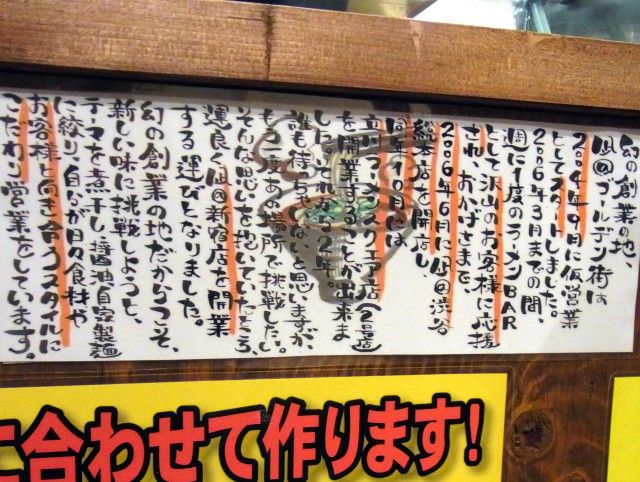 幻の創業の地、
凪@ゴールデン街は
2004年9月に仮営業
としてスタートしました。
2006年3月までの間、
週に1度のラーメンBAR
として、沢山のお客様に応援
され、おかげさまで、
2006年6月に凪@渋谷
総本店を開店し、
同年10月には
立川ラーメンスクエア店(2号店)
を開業することが出来ま
した。あれから2年。
誰も待ちていないと思いますが、
もう一度あの場所で挑戦したい。
そんな思いを抱いていたところ、
運良く凪@新宿店を開業
する運びとなりました。
幻の創業の地だからこそ、
新しい味に挑戦しようと、
テーマを煮干し、醤油、自家製麺
に絞り、自らが日々食材や
お客様と向き合うスタイルに
こだわり営業をしています。
に合わせて作ります!